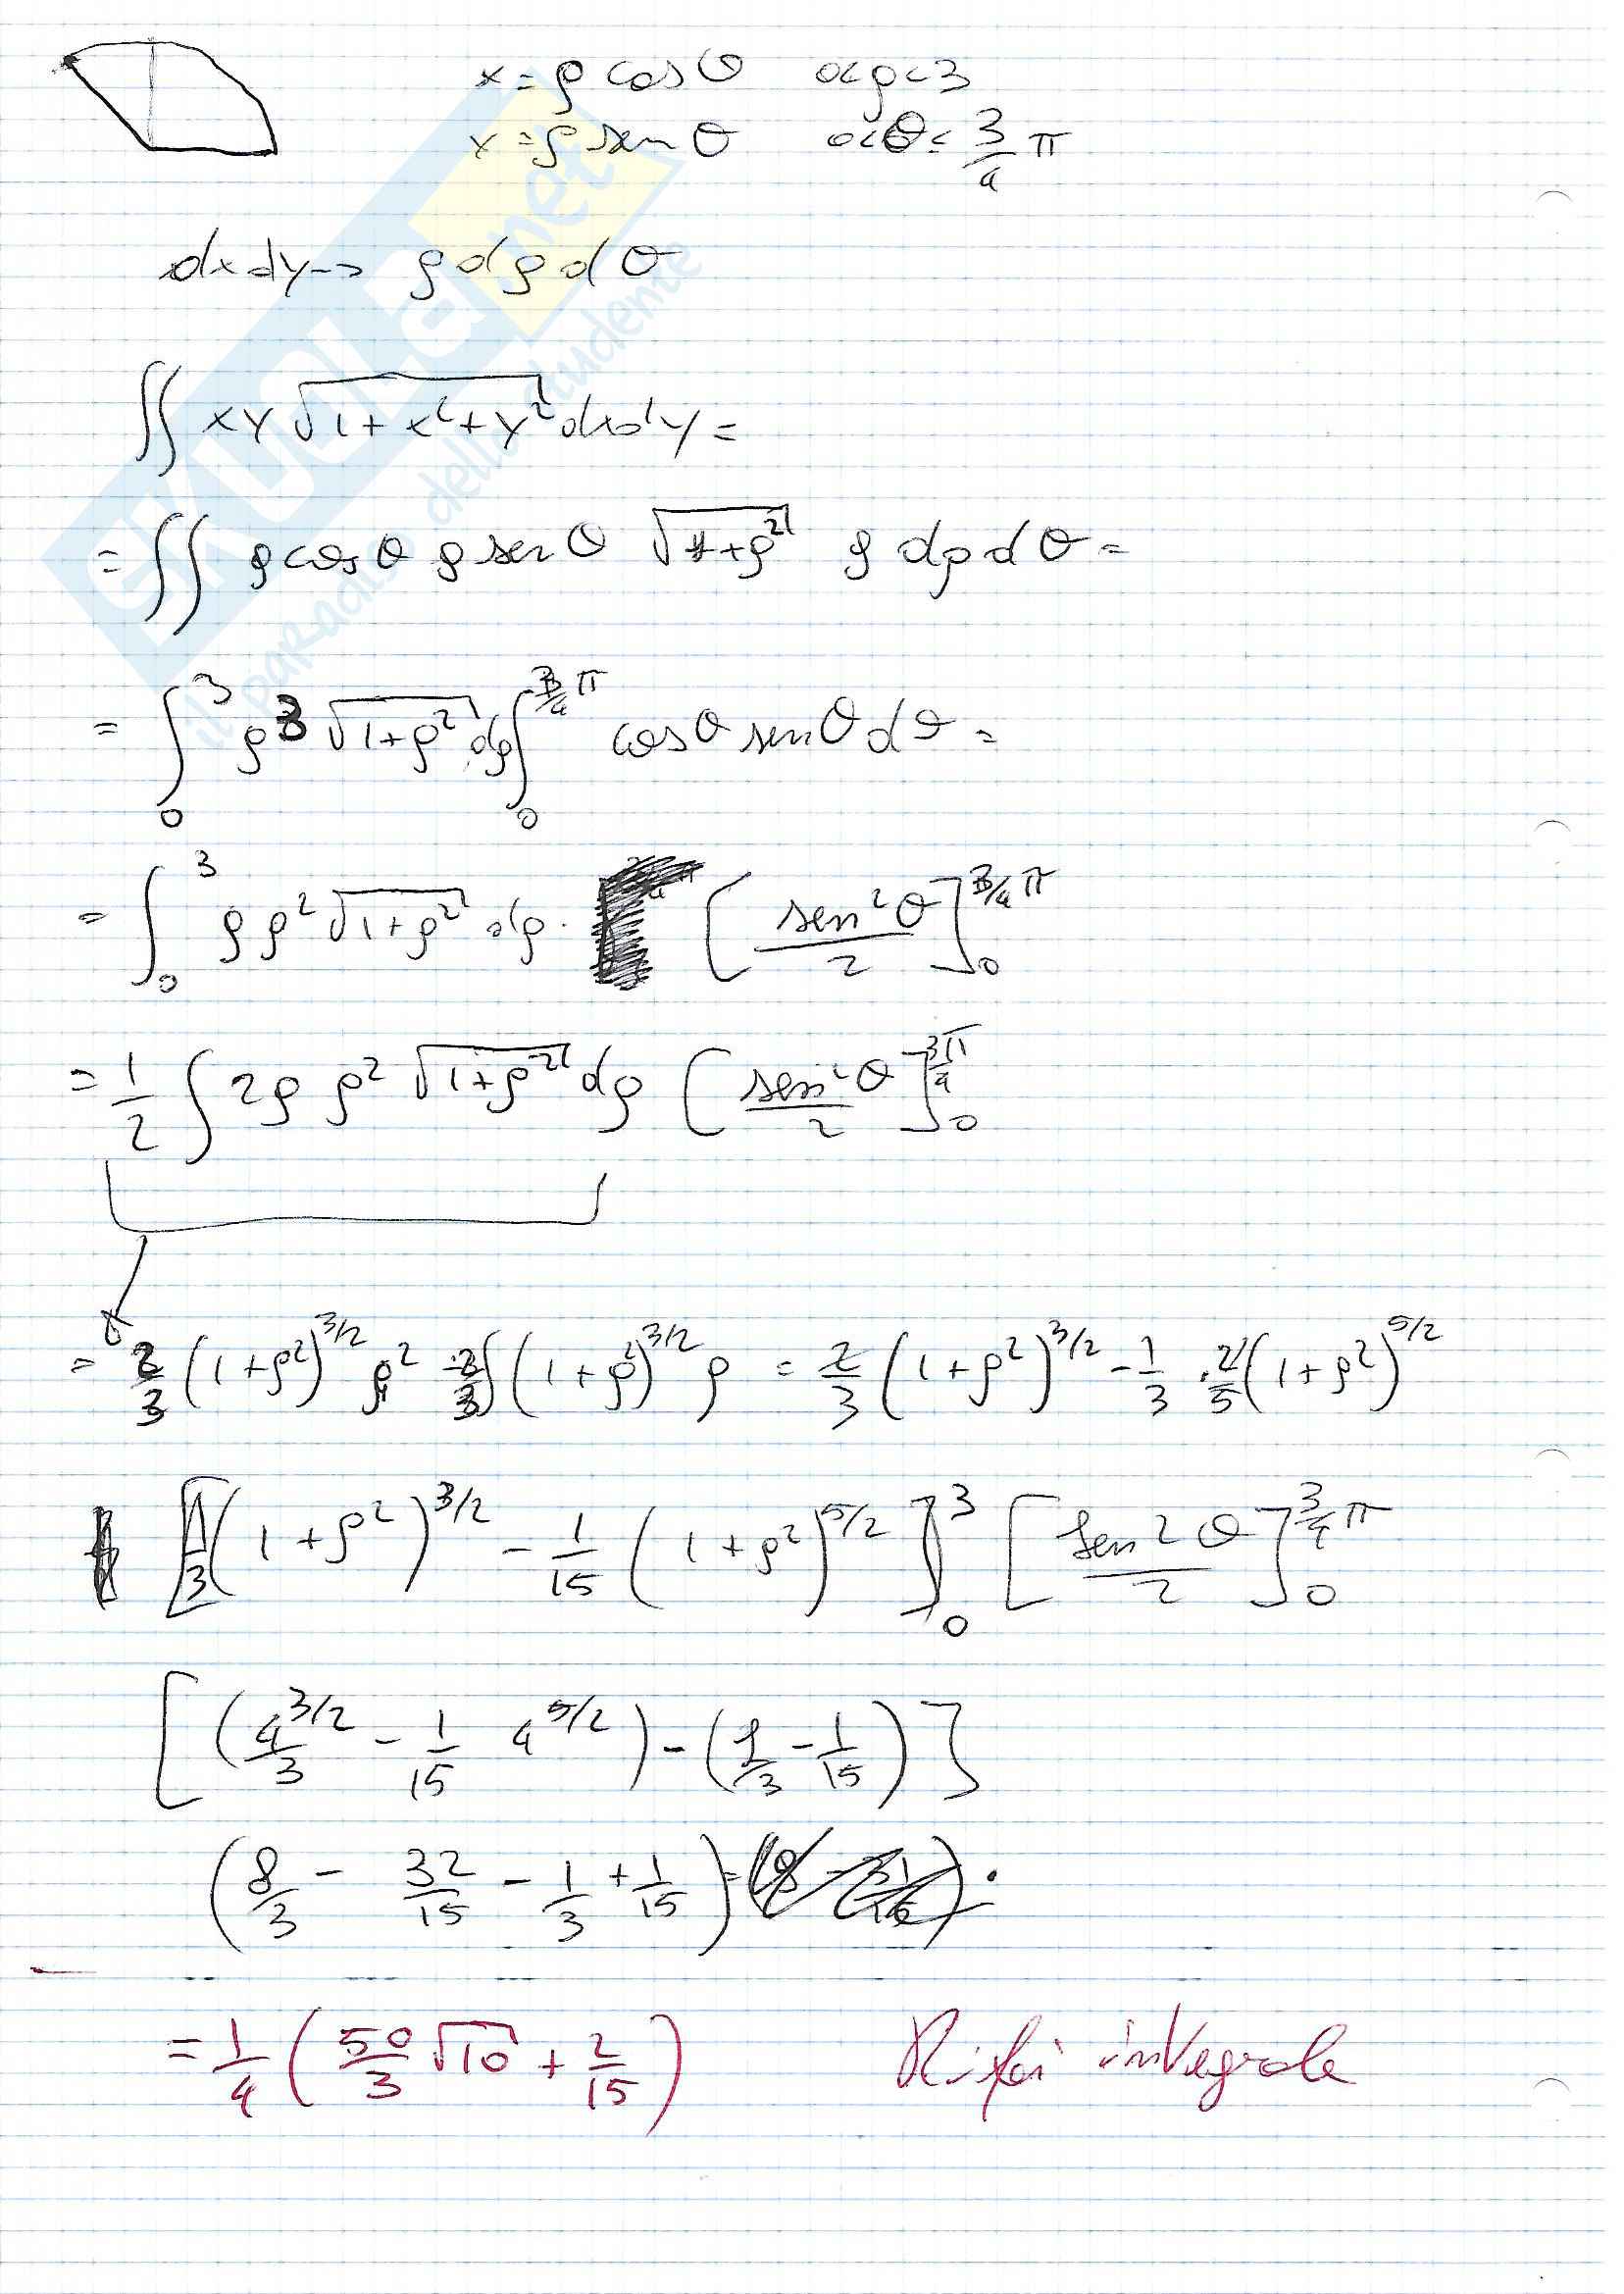 x = ρ cos θ   0<ρ<3
x = ρ sen θ   0<θ< 3/4 π
dxdy → ρ dρ d θ
∬ xy √(1+x²+y²) dxdy =
= ∬ ρ cos θ ρ sen θ √(1+ρ²) ρ dρ d θ =
= ∫₀³ ρ³ √(1+ρ²) dρ ∫₀^(3/4 π) cos θ sen θ d θ =
= ∫₀³ ρ ρ² √(1+ρ²) dρ · [sen² θ / 2]₀^(3/4 π)
= 1/2 ∫ 2ρ ρ² √(1+ρ²) dρ [sen² θ / 2]₀^(3π/4)
= 2/3 (1+ρ²)^(3/2) ρ² - 2/3 ∫ (1+ρ²)^(3/2) ρ = 2/3 (1+ρ²)^(3/2) - 1/3 · 2/5 (1+ρ²)^(5/2)
[1/3 (1+ρ²)^(3/2) - 1/15 (1+ρ²)^(5/2)]₀³ [sen² θ / 2]₀^(3/4 π)
[(4^(3/2)/3 - 1/15 4^(5/2)) - (1/3 - 1/15)]
(8/3 - 32/15 - 1/3 + 1/15) =
= 1/4 (50/3 √10 + 2/15)   Rifai integrale
SKUOLA.net
il paradiso dello studente